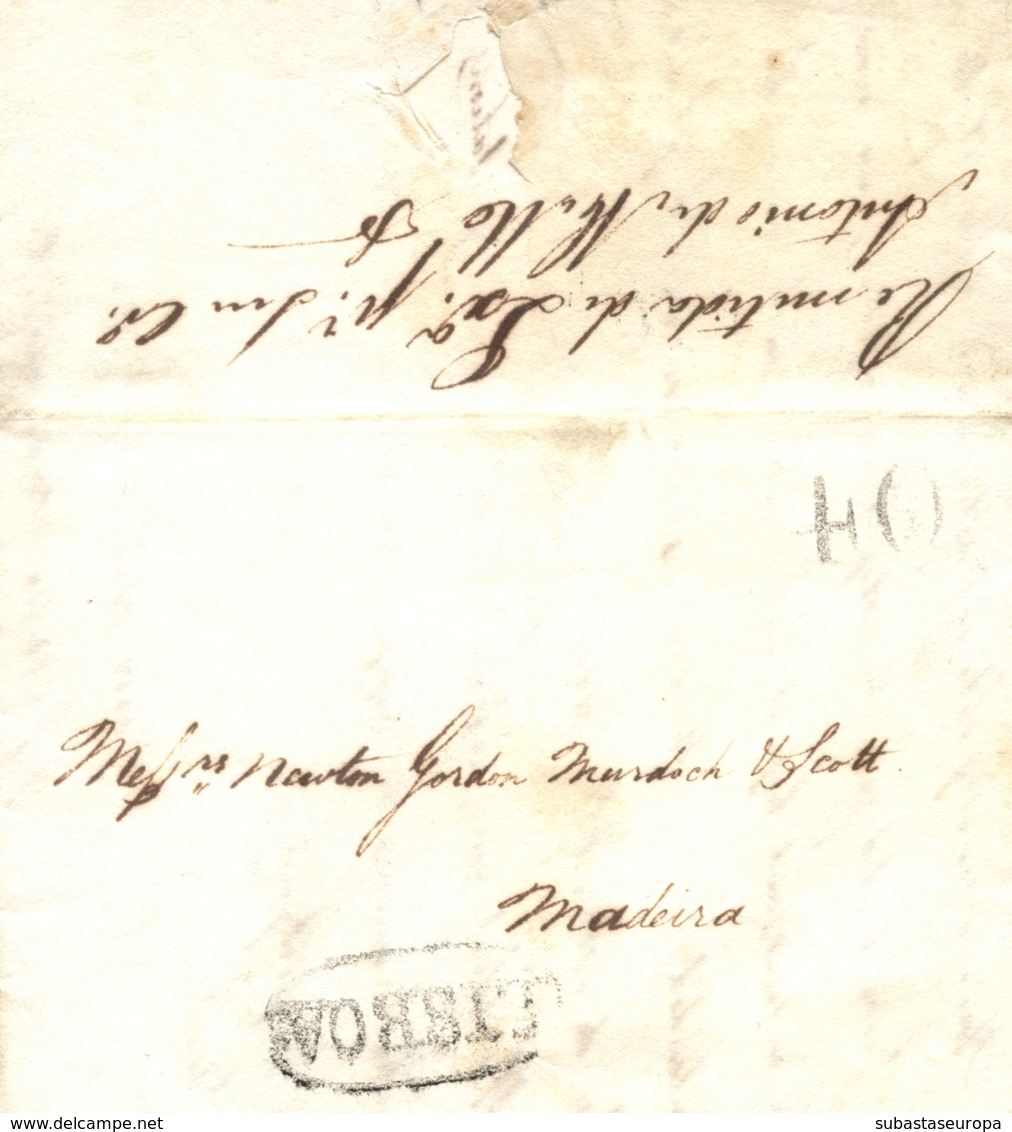 Remetida de Lxª. pr. Seu Cº.
Antonio de Mello
40
Messrs Newton Gordon Murdoch & Scott.
Madeira
LISBOA
www.delcampe.net
subastaseuropa